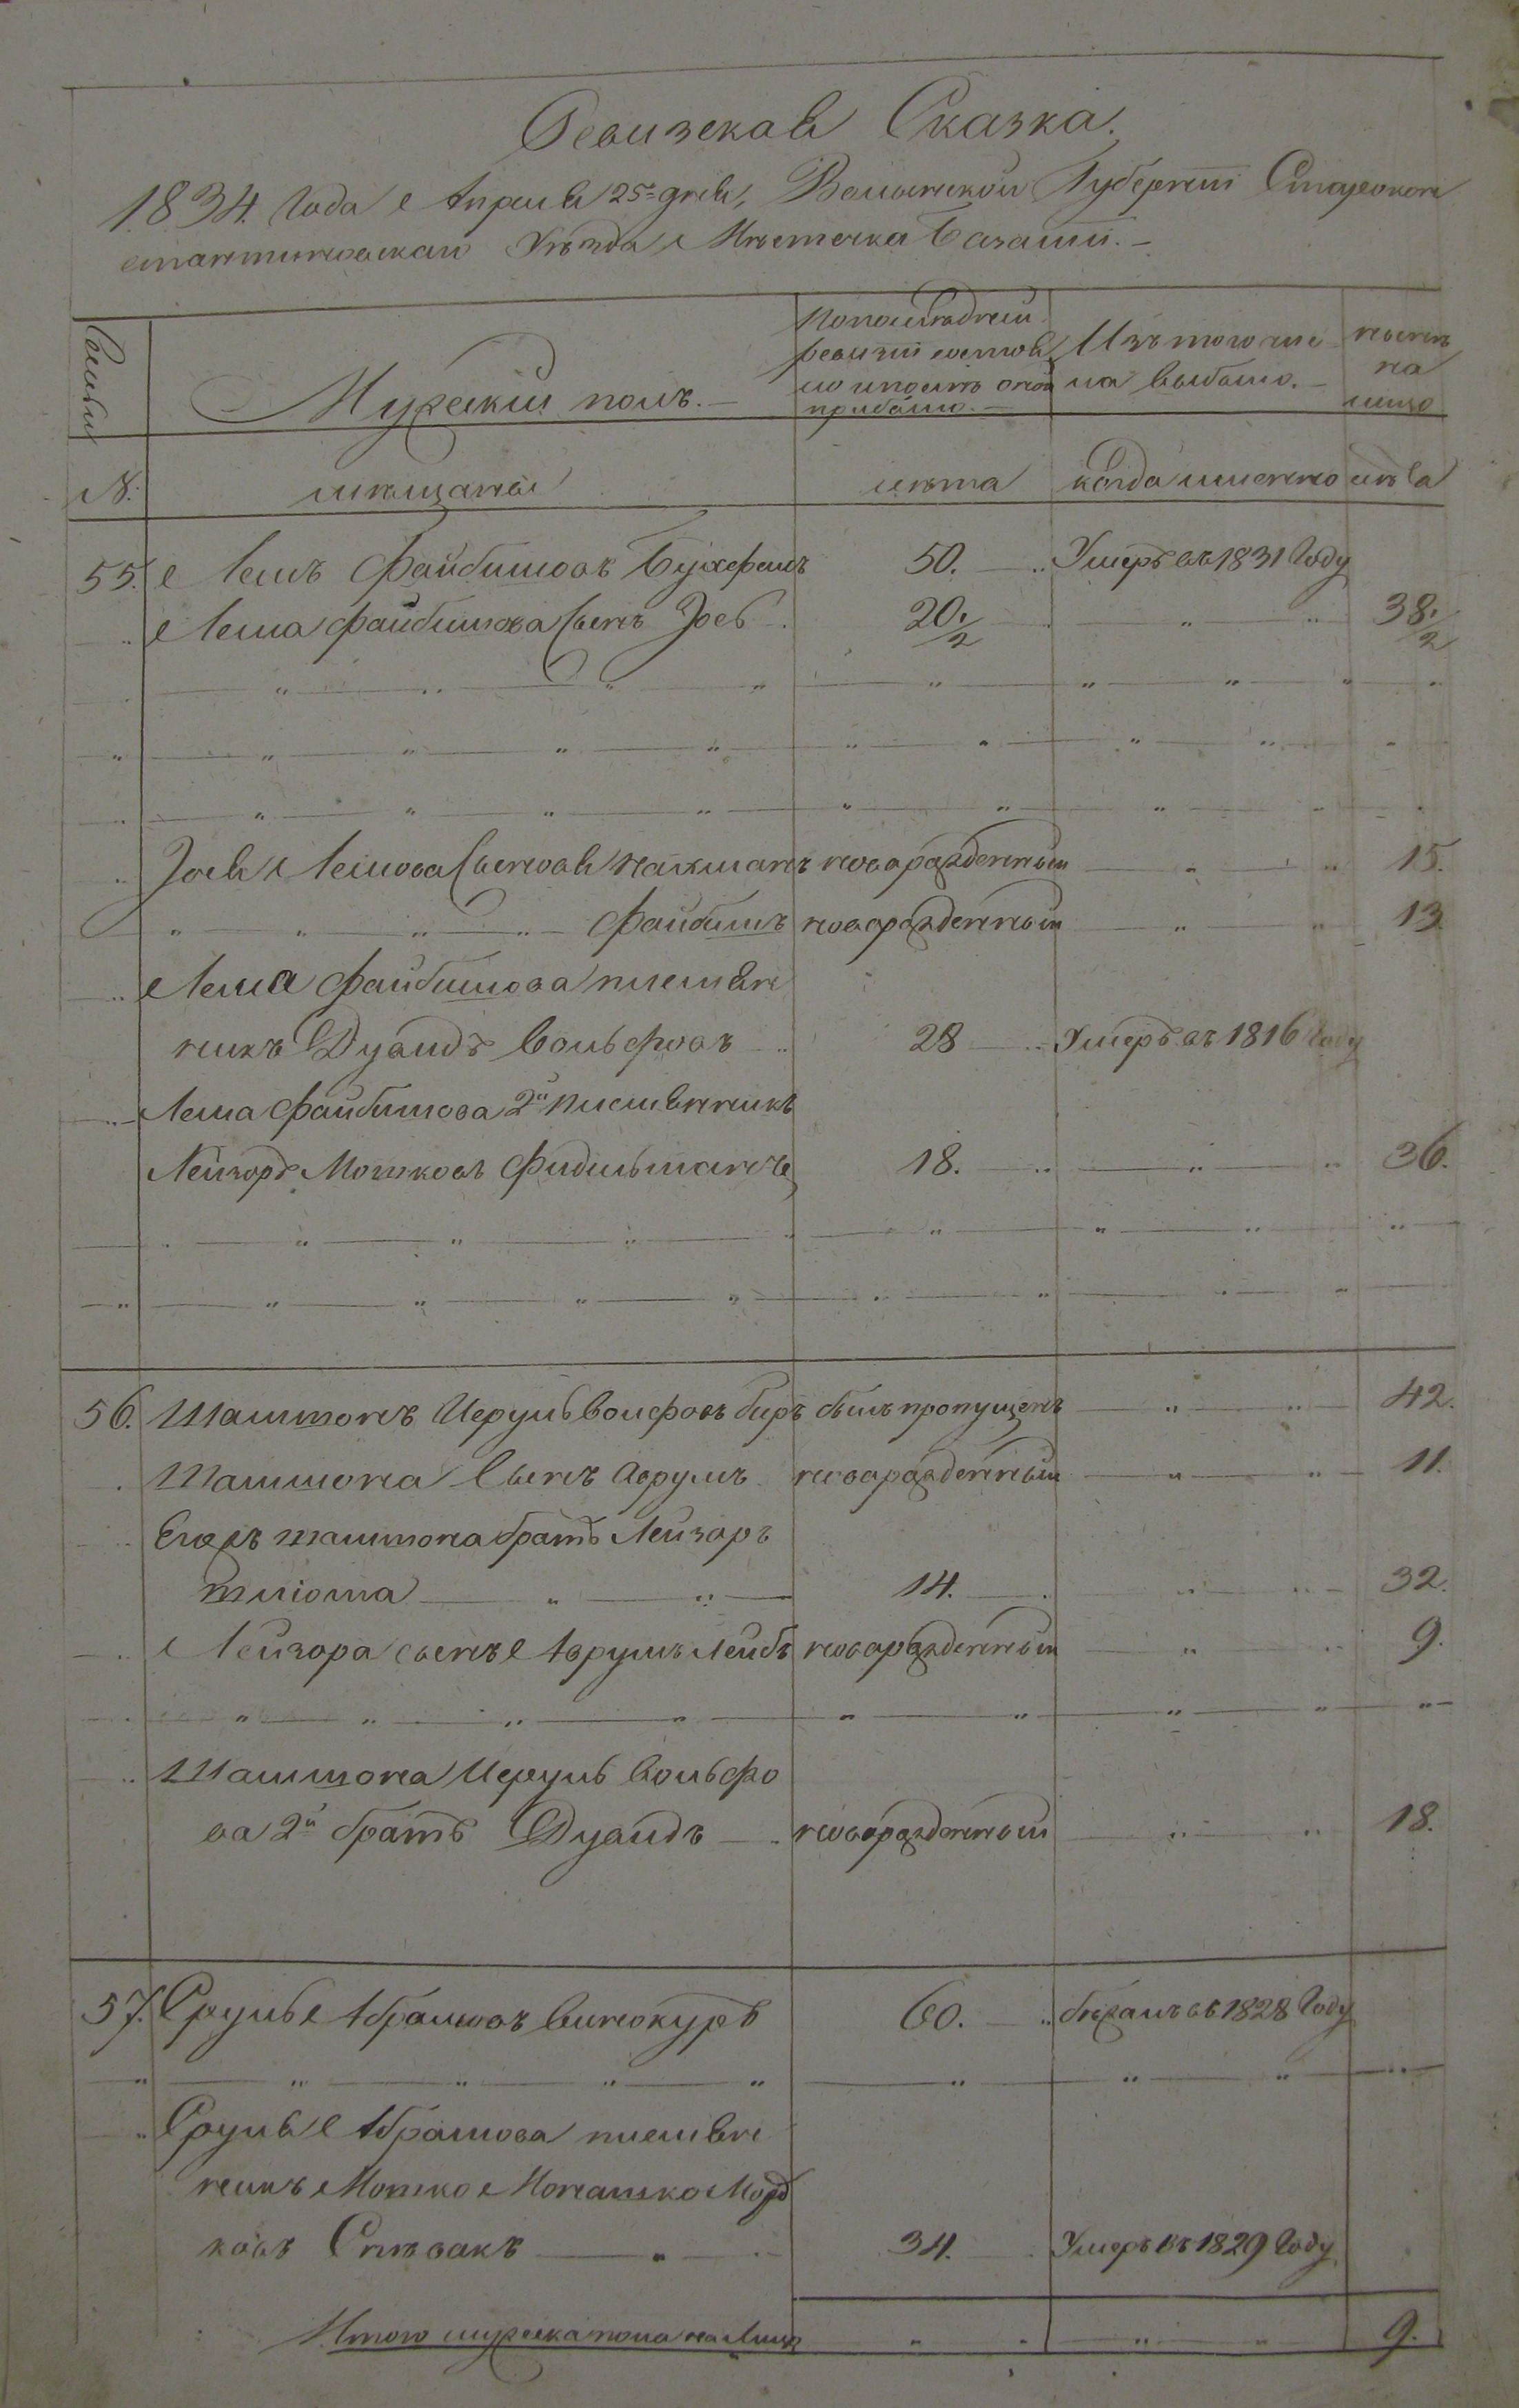 Ревизская Сказка.
1834. Года Апреля 25го дня, Волынской Губернiи Староконъ
стантиновскаго Уѣзда Мѣстечка Базалiи.
Семьи
Мужескiй полъ.
По последней
ревизiи состоя
ло и после оной
прибыло.
Изъ того чис
ла выбыло.
нынѣ
на
лицо
№.
мѣщане
лѣта
когда именно
лѣта
55. Лемъ Файбишовъ 50. Умеръ въ 1831 Году
Лема Файбишова Сынъ Iось 20./2 38./2
Iося Лемова Сыновья Нахманъ новорожденный 15.
Файбишъ новорожденный 13
Лема Файбишова племян
никъ Дувидъ Вольфовъ 28 Умеръ въ 1816 Году
Лема Файбишова 2й племянникъ
Лейзоръ Мошковъ Фидельманъ 18. 36.
56. былъ пропущенъ 42.
Сынъ Аврумъ новорожденный 11.
братъ Лейзоръ
14. 32.
Лейзора сынъ Аврумъ Лейбъ новорожденный 9.
Вольфо
ва 2й братъ Дувидъ новорожденный 18.
57. Сруль Абрамовъ Винокуръ 60. бѣжалъ въ 1828 Году
Сруля Абрамова племян
никъ Мошко Монашко Морд
ковъ Спѣвакъ 34. Умеръ въ 1829 Году
Итого мужеска пола на лицо 9.